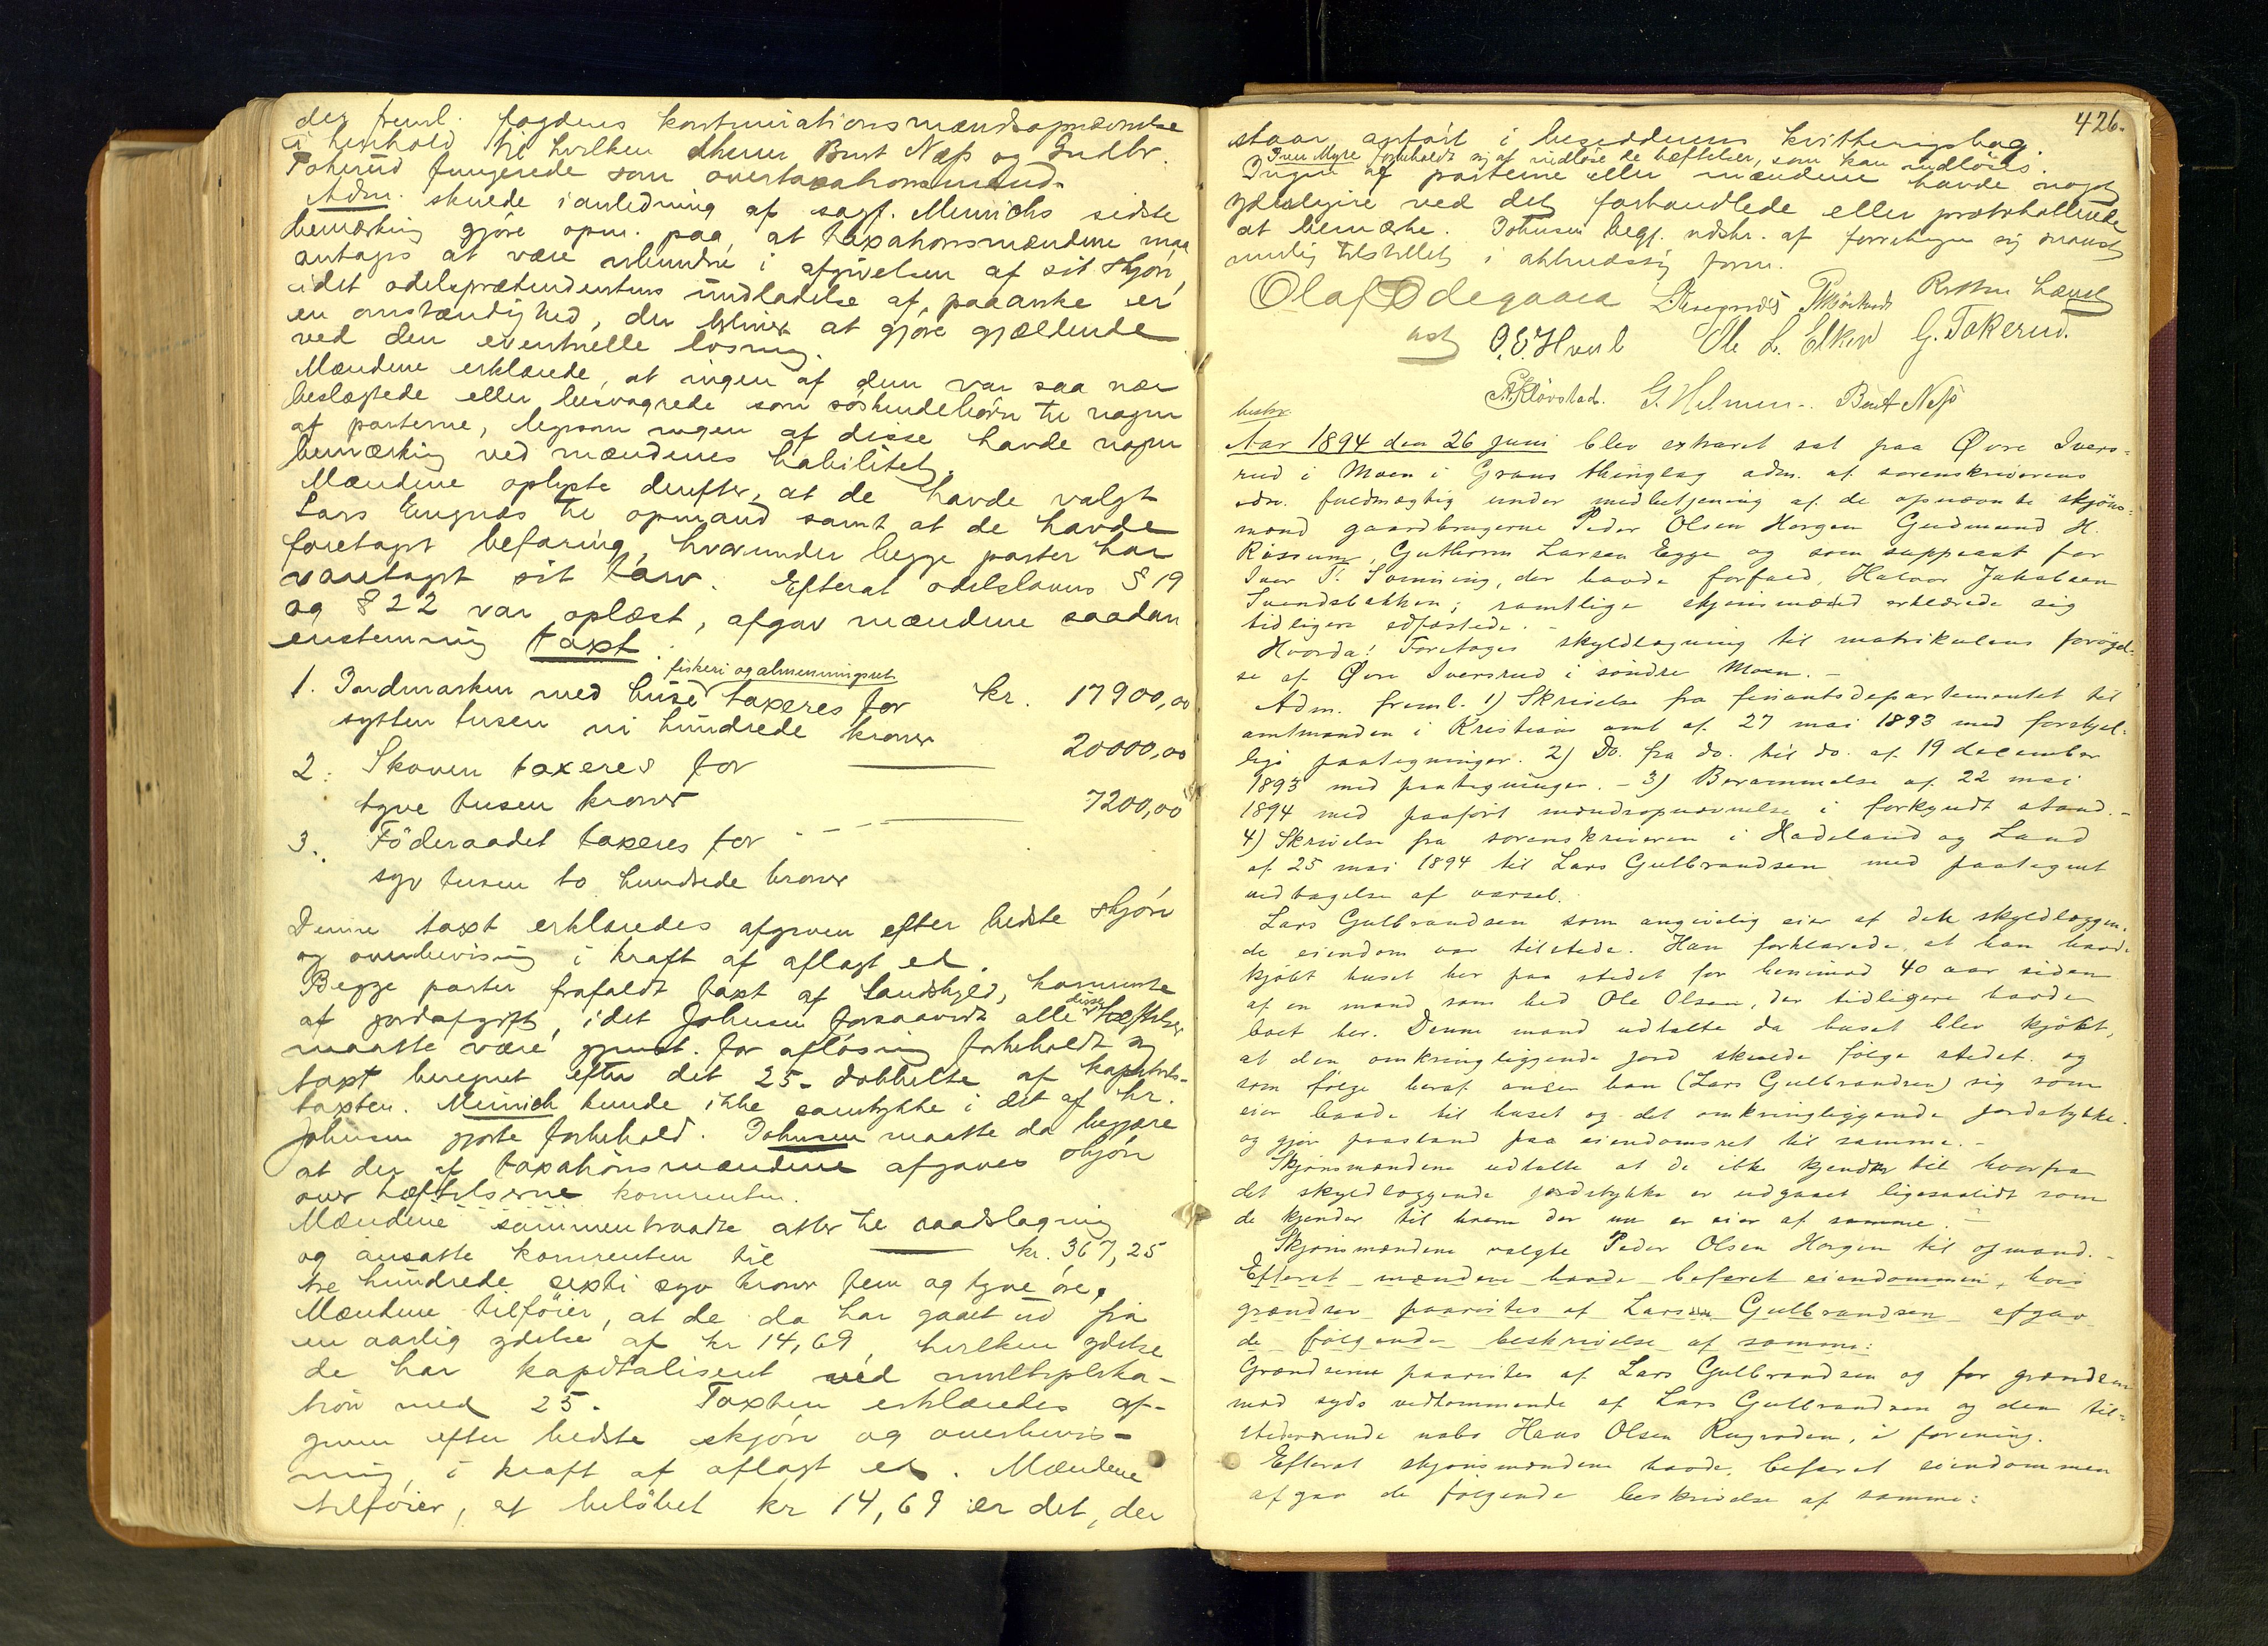 der freml. fogdens kontinuationsmændsopnævnelse
i henhold til hvilken dherrer Bent Næss og Gudbr.
Tokerud fungerede som overtaxationsmænd.
Adm. skulde i anledning af sagf. Meinichs sidste
bemærkning gjøre opm. paa, at taxationsmændene maa
antages at være ubundne i afgivelsen af sit skjøn,
idet odelsprætendentens undladelse af paaanke er
en omstændighed, der bliver at gjøre gjældende
ved den eventuelle løsning.
Mændene erklærede, at ingen af dem var saa nær
beslægtede eller besvogrede som søskendebørn til nogen
af parterne, ligesom ingen af disse havde nogen
bemærkning ved mændenes habilitet.
Mændene oplyste derefter, at de havde valgt
Lars Engnæs til opmand samt at de havde
foretaget befaring, hvorunder begge parter har
varetaget sit tarv. Efterat odelslovens § 19
og § 22 var oplæst, afgav mændene saadan
enstemmig taxt:
fiskeri og almenningsret
1. Jordmarken med huse taxeres for kr. 17900,00
sytten tusen ni hundrede kroner
2. Skoven taxeres for 20000,00
tyve tusen kroner
3. Föderaadet taxeres for 7200,00
syv tusen to hundrede kroner
Denne taxt erklæredes afgiven efter bedste skjøn
og overbevisning i kraft af aflagt ed.
Begge parter frafaldt taxt af landskyld, komrente
af jordafgift, idet Johnsen forsaavidt alle disse hæftelser
maatte være gjenst. for afløsning forbeholdt sig
taxt beregnet efter det 25-dobbelte af kapitels-
taxten. Meinich kunde ikke samtykke i det af hr.
Johnsen gjorte forbehold. Johnsen maatte da begjære
at der af taxationsmændene afgaves skjøn
over hæftelserne komrenten.
Mændene sammentraadte atter til raadslagning
og ansatte komrenten til kr. 367,25
tre hundrede sexti syv kroner fem og tyve øre.
Mændene tilføier, at de da har gaaet ud fra
en aarlig ydelse af kr 14,69, hvilken ydelse
de har kapitaliseret ved multiplika-
tion med 25. Taxten erklæredes af-
given efter bedste skjøn og overbevis-
ning, i kraft af aflagt ed. Mændene
tilføier, at beløbet kr 14,69 er det, der
426.
staar anført i besidderens kvitteringsbog.
Iver Myre forbeholdt sig at indløse de hæftelser, som kan indløses.
Ingen af parterne eller mændene havde noget
ydeligere ved det forhandlede eller protokollerede
at bemærke. Johnsen begj. udskr. af forretningen sig snarest
mulig tilstillet i attmæssig form.
Olaf Ødegaard L. Engnæs
ast O. E. Hval Ole L. Elken G. Tokerud.
P. Kløvstad. G. Helmen. Bent Næss
beskr.
Aar 1894 den 26 juni blev extraret sat paa Øvre Ivers-
rud i Moen i Grans thinglag adm. af sorenskriverens
edsv. fuldmægtig under medbetjening af de opnævnte skjøns-
mænd gaardbrugerne Peder Olsen Horgen Gudmund H.
Rossum, Guthorm Larsen Egge og som suppleant for
Iver P. Lømming, der havde forfald, Halvor Jakobsen
Svendsbakken; samtlige skjønsmænd erklærede sig
tidligere edfæstede. -
Hvorda! Foretoges skyldlægning til matrikulens forøgel-
se af Øvre Iversrud i søndre Moen. -
Adm. freml. 1) Skrivelse fra finantsdepartementet til
amtmanden i Kristians amt af 27 mai 1893 med forskjel-
lige paategninger. 2) Do. fra do. til do. af 19 december
1893 med paategninger. - 3) Berammelse af 22 mai
1894 med paaført mændsopnævnelse i forkyndt stand. -
4) Skrivelse fra sorenskriveren i Hadeland og Land
af 25 mai 1894 til Lars Gulbrandsen med paategnet
vedtagelse af varsel.
Lars Gulbrandsen som angivelig eier af dette skyldlæggen-
de eiendom var tilstede. Han forklarede, at han havde
kjøbt huset her paa stedet for henimod 40 aar siden
af en mand som hed Ole Olsen, der tidligere havde
boet her. Denne mand udtalte da huset blev kjøbt,
at den omkringliggende jord skulde følge stedet og
som følge heraf anser han (Lars Gulbrandsen) sig som
eier baade til huset og det omkringliggende jordstykke
og gjør paastand paa eiendomsret til samme. -
Skjønsmændene udtalte at de ikke kjender til hvorfra
det skyldlæggende jordstykke er udgaaet ligesaalidt som
de kjender til hvem der nu er eier af samme. -
Skjønsmændene valgte Peder Olsen Horgen til opmand. -
Efterat mændene havde befaret eiendommen, hvis
grændser paavistes af Lars Gulbrandsen afgav
de følgende beskrivelse af samme:
Grændserne paavistes af Lars Gulbrandsen og for grændsen
mod syds vedkommende af Lars Gulbrandsen og den til-
stedeværende nabo Hans Olsen Rugroden, i forening.
Efterat skjønsmændene havde befaret eiendommen
afgav de følgende beskrivelse af samme: